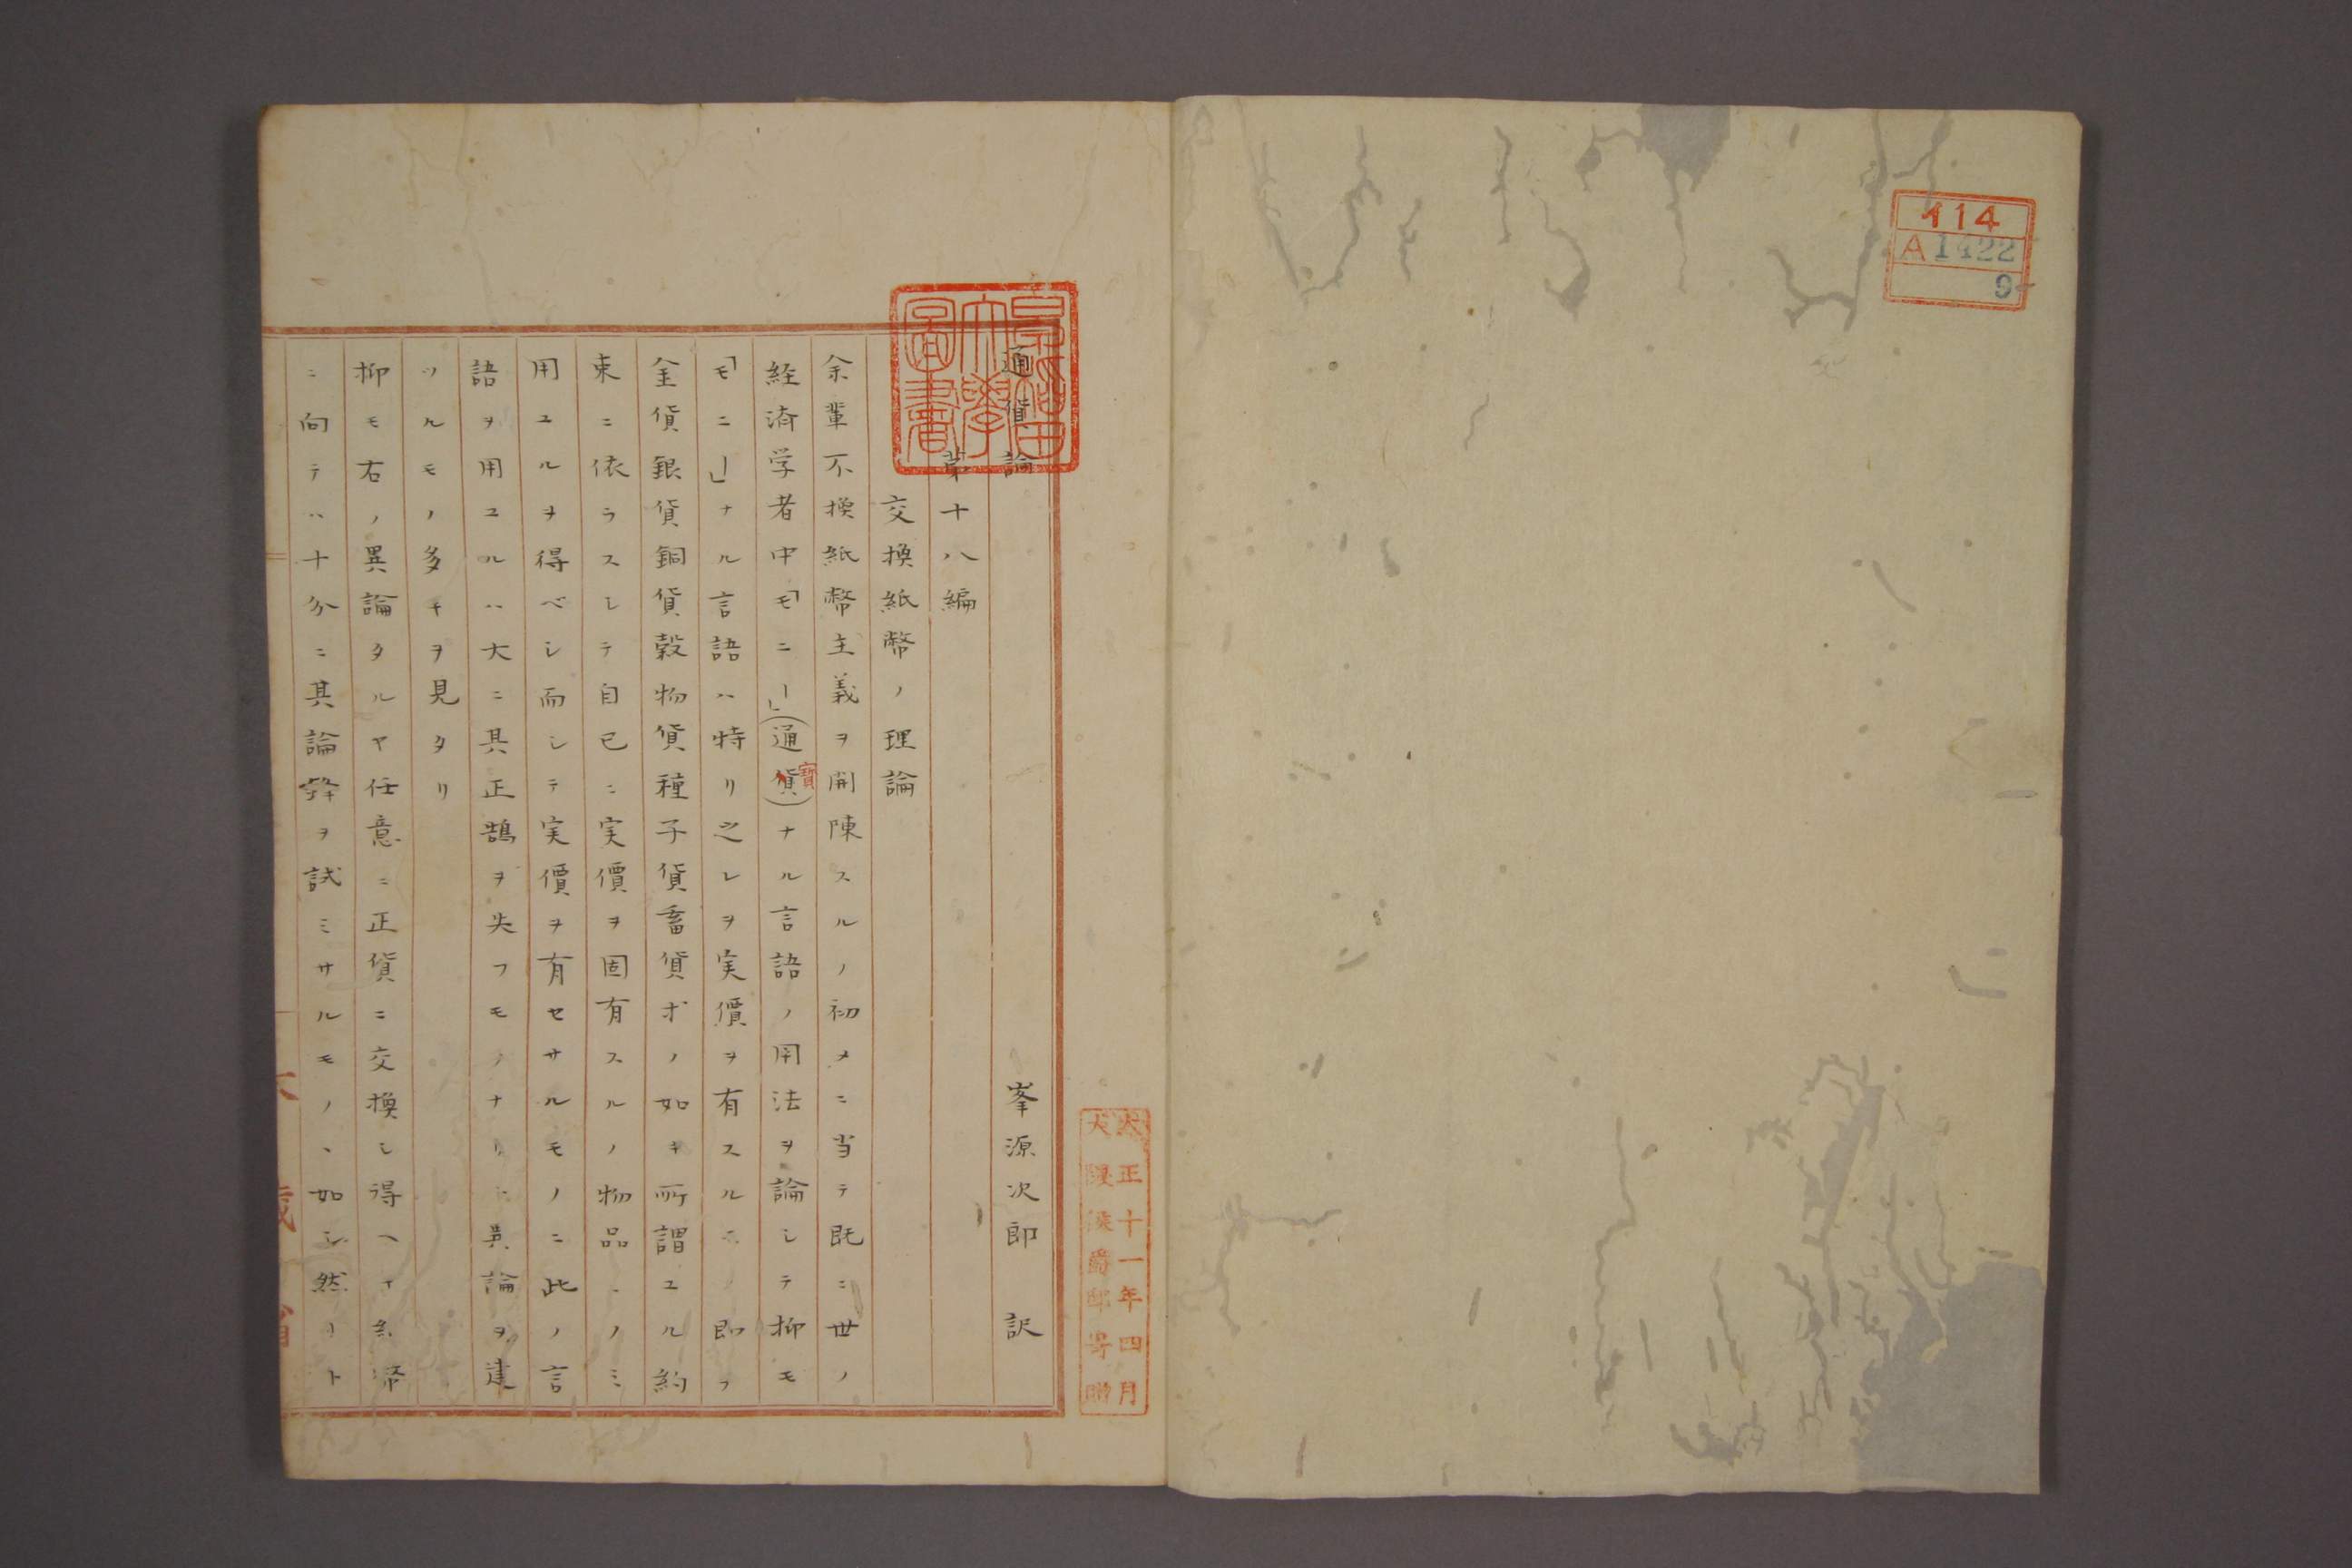 イ14
A1422
9
大正十一年四月
大隈侯爵邸寄贈
早稲田
大學
圖書
通貨論
峯源次郎 訳
第十八編
交換紙幣ノ理論
余輩不換紙幣主義ヲ開陳スルノ初メニ当テ既ニ世ノ
経済学者中「モニー」(通貨)ナル言語ノ用法ヲ論シテ抑モ
寳
「モニー」ナル言語ハ特リ之レヲ実價ヲ有スル 即フ
金貨銀貨銅貨穀物貨種子貨畜貨才ノ如キ所謂ユル約
束ニ依ラスシテ自己ニ実價ヲ固有スルノ物品ニノミ
用ユルヲ得ベシ而シテ実價ヲ有セサルモノニ此ノ言
語ヲ用ユルハ大ニ其正鵠ヲ失フモノナリト異論ヲ建
ツルモノ多キヲ見タリ
抑モ右ノ異論タルヤ任意ニ正貨ニ交換シ得ヘキ紙幣
ニ向テハ十分ニ其論鋒ヲ試ミサルモノヽ如シ然リト
大藏省